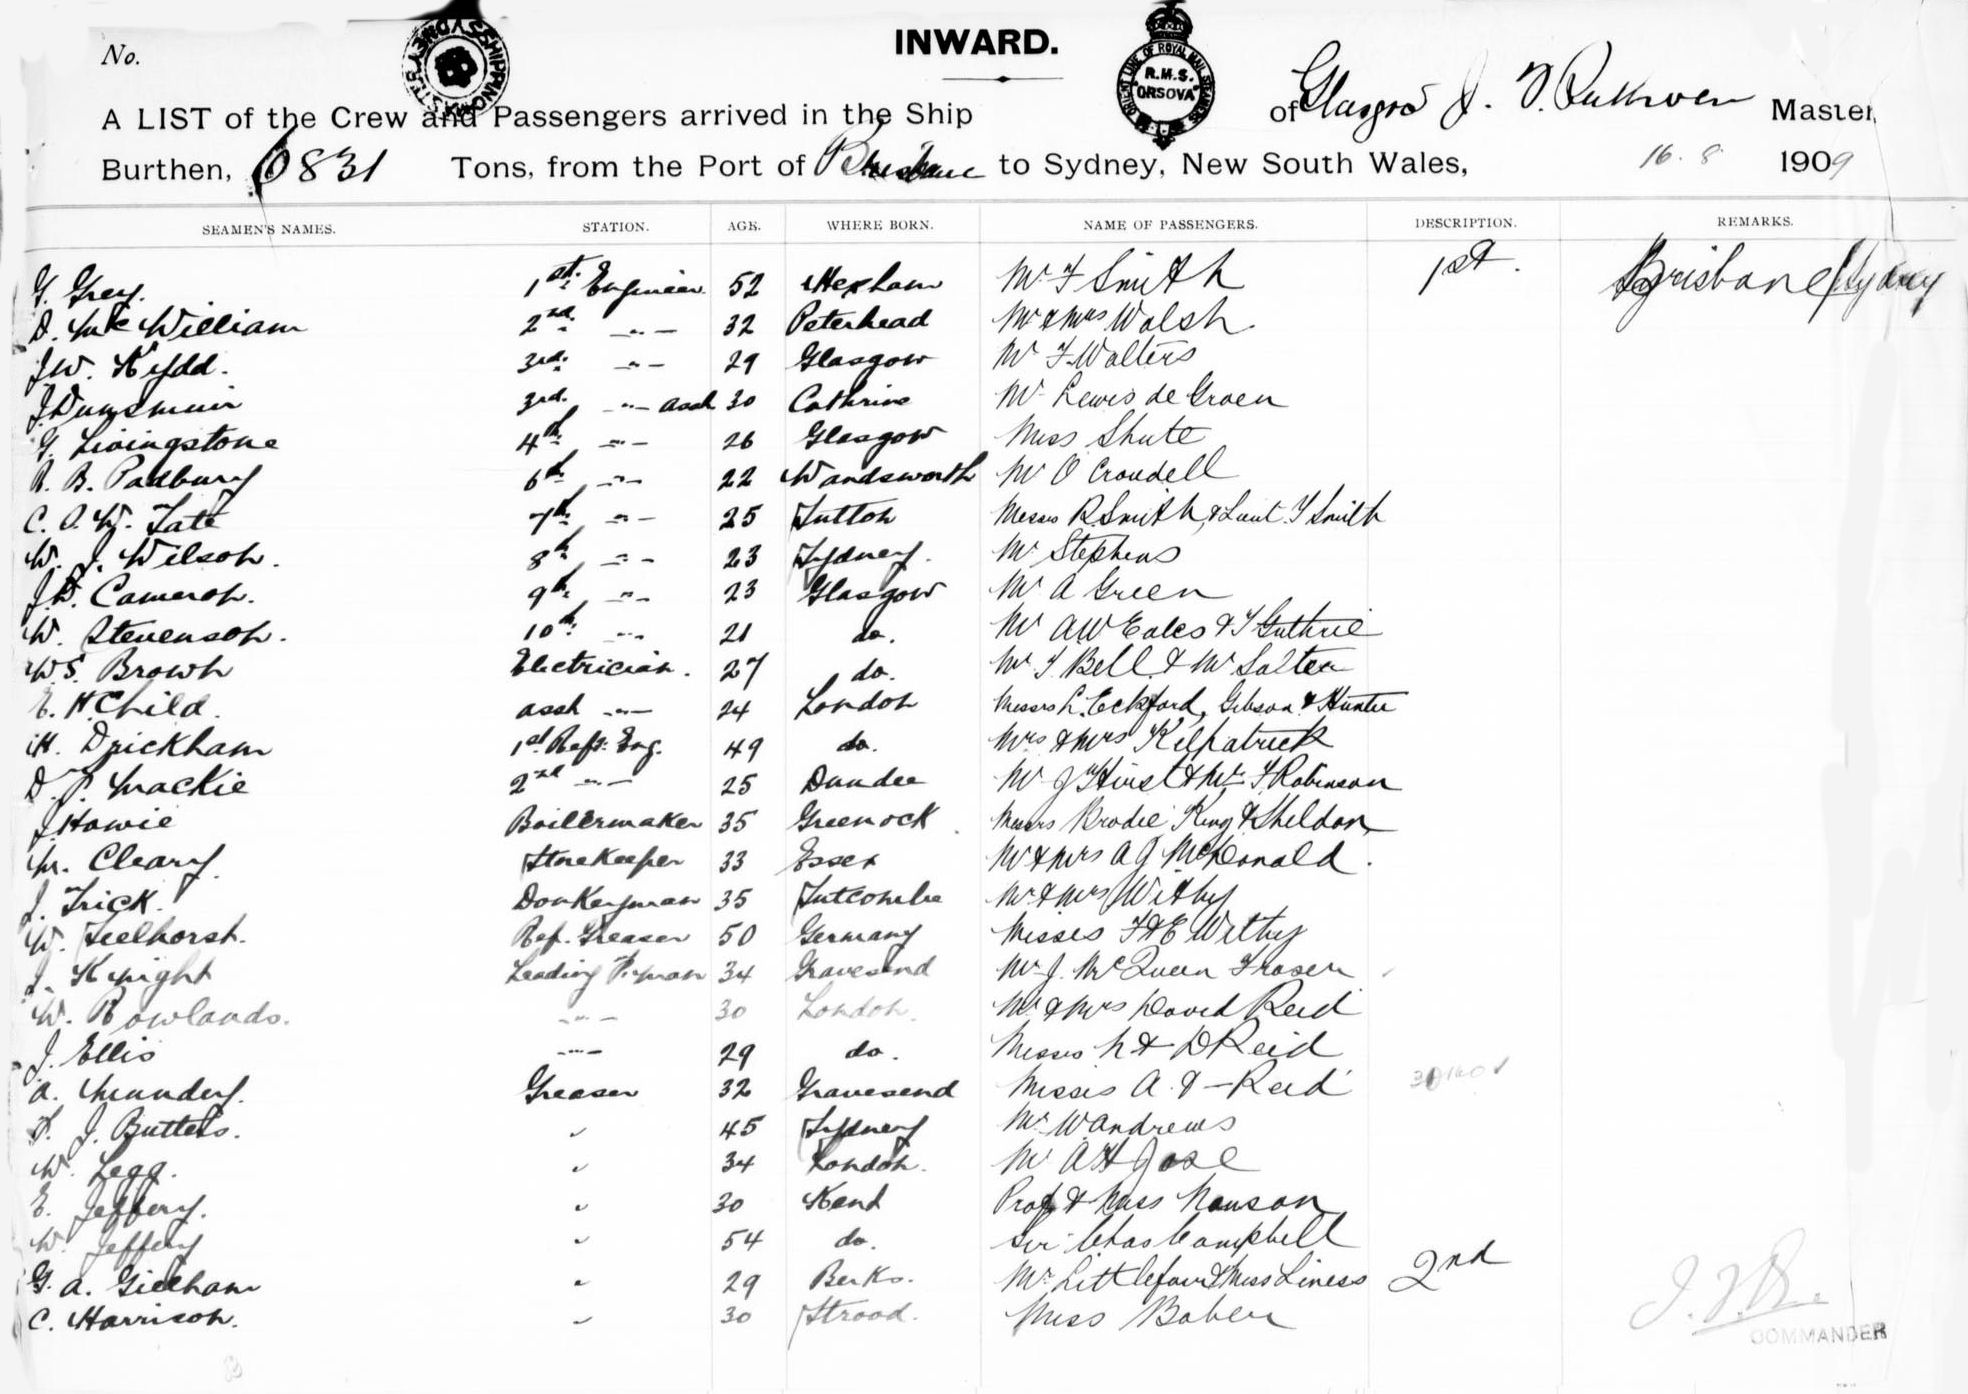 No.
SYDNEY SHIPPING MASTER
INWARD.
ORIENT LINE OF ROYAL MAIL STEAMERS
R.M.S. "ORSOVA"
A LIST of the Crew and Passengers arrived in the Ship of Glasgow J. F. Ruthven Master,
Burthen, 6831 Tons, from the Port of Brisbane to Sydney, New South Wales, 16.8 1909
SEAMEN'S NAMES. STATION. AGE. WHERE BORN. NAME OF PASSENGERS. DESCRIPTION. REMARKS.
G. Grey. 1st Engineer 52 Hexham Mr F Smith 1st. Brisbane/Sydney
D. McWilliam 2nd -"- 32 Peterhead Mr & Mrs Walsh.
J.W. Kydd. 3rd -"- 29 Glasgow Mr F Walters
J Dunsmuir 3rd -"- asst 30 Cathrine Mr Lewis de Groen
G. Livingstone 4th -"- 26 Glasgow Miss Shute
R. B. Padbury 6th -"- 22 Wandsworth Mr O Croudell
C. O. W. Tate 7th -"- 25 Sutton Messrs R. Smith, & Lieut. T Smith
W. J. Wilson. 8th -"- 23 Sydney. Mr Stephens
J.D. Cameron. 9th -"- 23 Glasgow Mr A Green
W. Stevenson. 10th -"- 21 do. Mr AW Eales & T Guthrie
W.S. Brown Electrician. 27 do. Mr T Bell & Mr Salter
E. H. Child. asst -"- 24 London Messrs L. Eckford, Gibson & Hunter
H. Drickham 1st Refr. Eng. 49 do. Mrs & Mrs Kilpatrick
D. P. Mackie 2nd -"- 25 Dundee Mr J Hirst & Mr F Robinson
J. Howie Boilermaker 35 Greenock. Messrs Brodie King & Sheldon
M. Cleary. Storekeeper 33 Essex Mr & Mrs A G McDonald.
J. Trick. Donkeyman 35 Tutcombe Mr & Mrs Withy
W. Seelhorst. Ref. Greaser 50 Germany Misses F & E Withy
J. Knight Leading F.man 34 Gravesend Mr J. McQueen Fraser
W. Rowlands. -"- 30 London. Mr & Mrs David Reid
J. Ellis -"- 29 do. Misses N & D Reid
A. Mundey. Greaser 32 Gravesend Misses A. & - Reid
F. J. Butters. " 45 Sydney Mr W Andrews
W. Legg. " 34 London. Mr A H Jose
E. Jeffery. " 30 Kent Prof & Miss Nanson
W. Jeffery " 54 do. Sir Chas Campbell
G. A. Gilham " 29 Berks. Mr Littlefair & Miss Liness 2nd
C. Harrison. " 30 Strood. Miss Baber
J.F.R.
COMMANDER